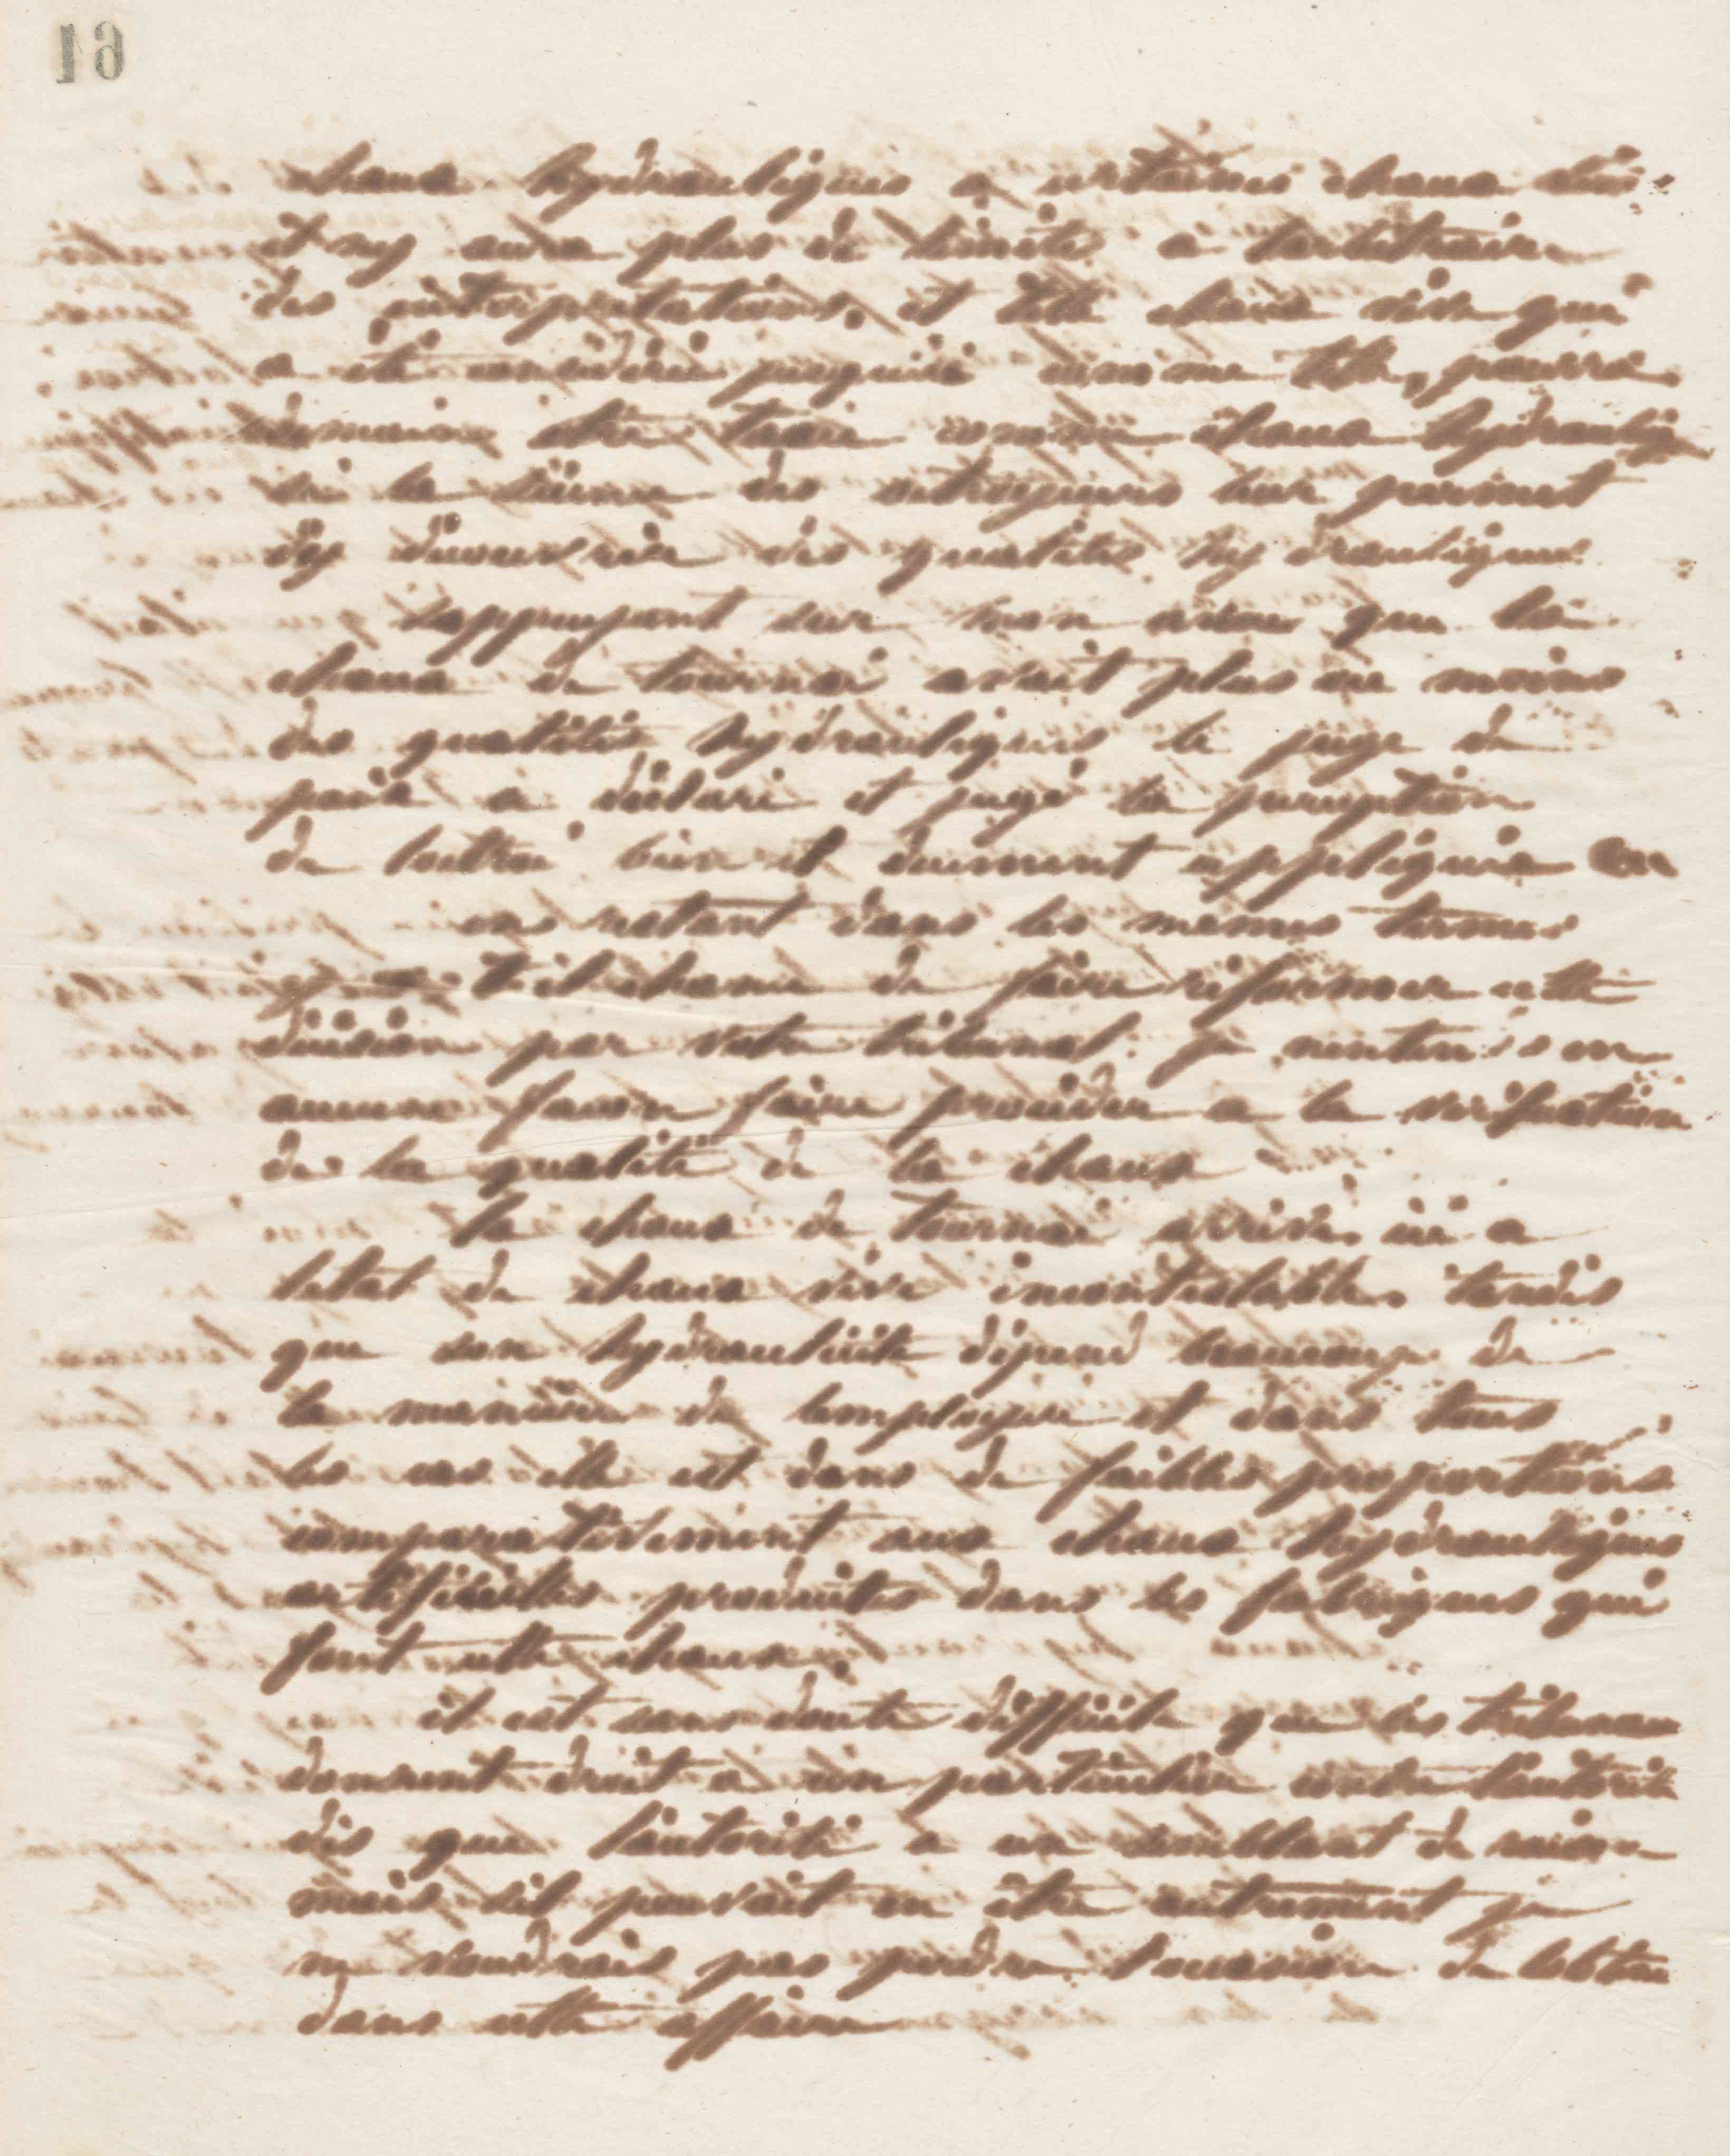 chaux hydrauliques a certaines chaux
il ny aura plus de limite a larbitraire
des interpretations, et telle chaux vive qui
a été considérée jusquici comme telle, pourra
demain être taxée comme chaux hydrauliq
si la science des octroyeurs leur permet
dy découvrir des qualités hydrauliques
sappuyant sur mon aveu que la
chaux de tournai avait plus ou moins
des qualités hydrauliques le juge de
paix a déclaré et jugé la perception
de loctroi bien et duement appliquée
en restant dans les mêmes termes
y a t-il chance de faire réformer cette
décision par votre tribunal. je nentends en
aucune facon faire procéder a la vérification
de la qualité de la chaux
la chaux de tournai arrive ici a
letat de chaux vive incontestable, tandis
que son hydraulicité dépend beaucoup de
la manière de lemployer et dans tous
les cas elle est dans de faibles proportions
comparativement aux chaux hydrauliques
artificielles produites dans les fabriques qui
font cette chaux.
il est sans doute difficile que les tribunaux
donnent droit a un particulier contre lautorité
dès que lautorité a un semblant de raison
mais sil pouvait en être autrement je
ne voudrais pas perdre loccasion de lobtenir
dans cette affaire